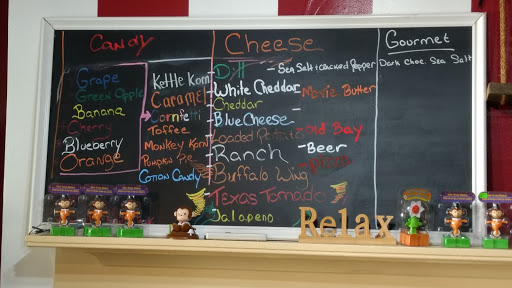 Candy
Grape
Green Apple
Banana
Cherry
Blueberry
Orange
Kettle Korn
Caramel
Cornfetti
Toffee
Monkey Korn
Pumpkin Pie
Cotton Candy
Cheese
Dill
White Cheddar
Cheddar
Blue Cheese
Loaded Potato
Ranch
Buffalo Wing
Texas Tornado
Jalapeno
- Sea Salt + Cracked Pepper
- Movie Butter
- Old Bay
- Beer
Gourmet
Dark Choc. Sea Salt
Relax